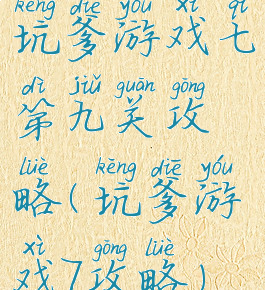 kēng diē yóu xì qī
坑爹游戏七
dì jiǔ guān gōng
第九关攻
lüè kēng diē yóu
略(坑爹游
xì gōng lüè
戏7攻略)